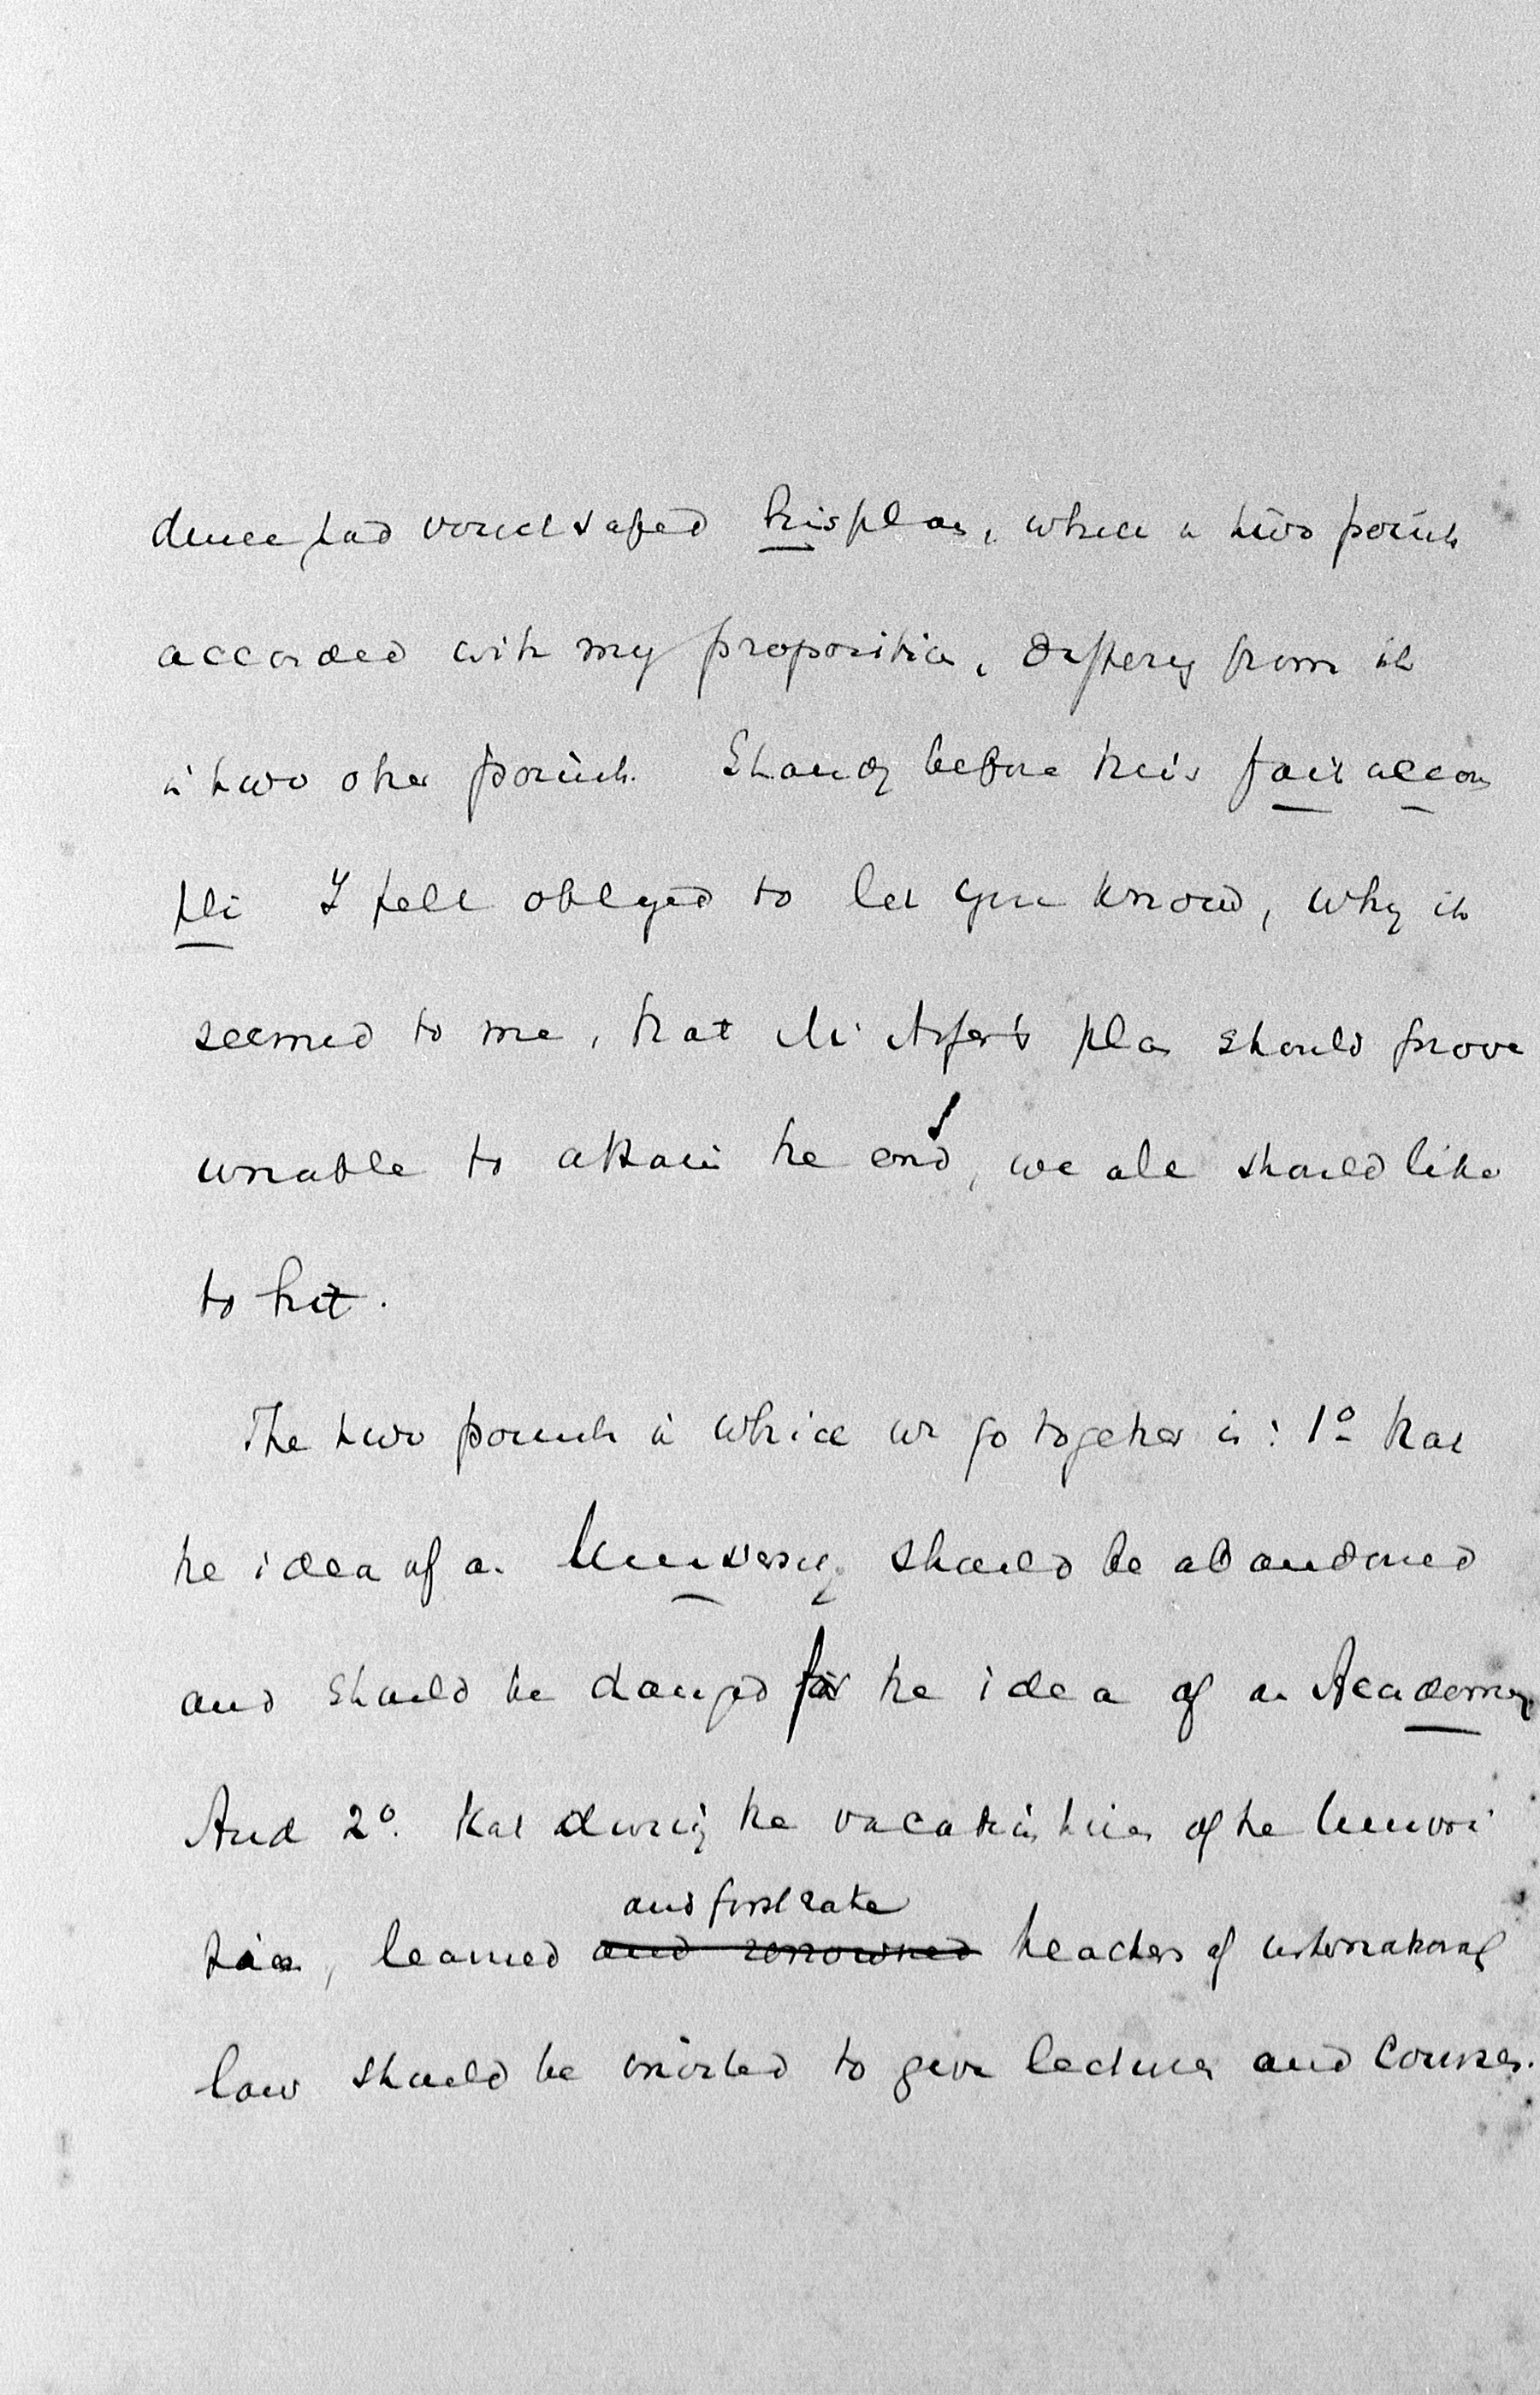 dence had vouchsafed his plan, which in two points
accorded with my proposition, differs from it
in two other points. Standing before this fait accom
pli I felt obliged to let you know, why it
seemed to me, that Mr. plan should prove
unable to attain the end, we all should like
to hit.
The two points in which we go together is: 1o that
the idea of an University should be abandoned
and should be changed for the idea of an Academy.
And 2o. that during the vacation times of the Universi
ties, learned and first rate teachers of international
law should be invited to give lectures and courses.